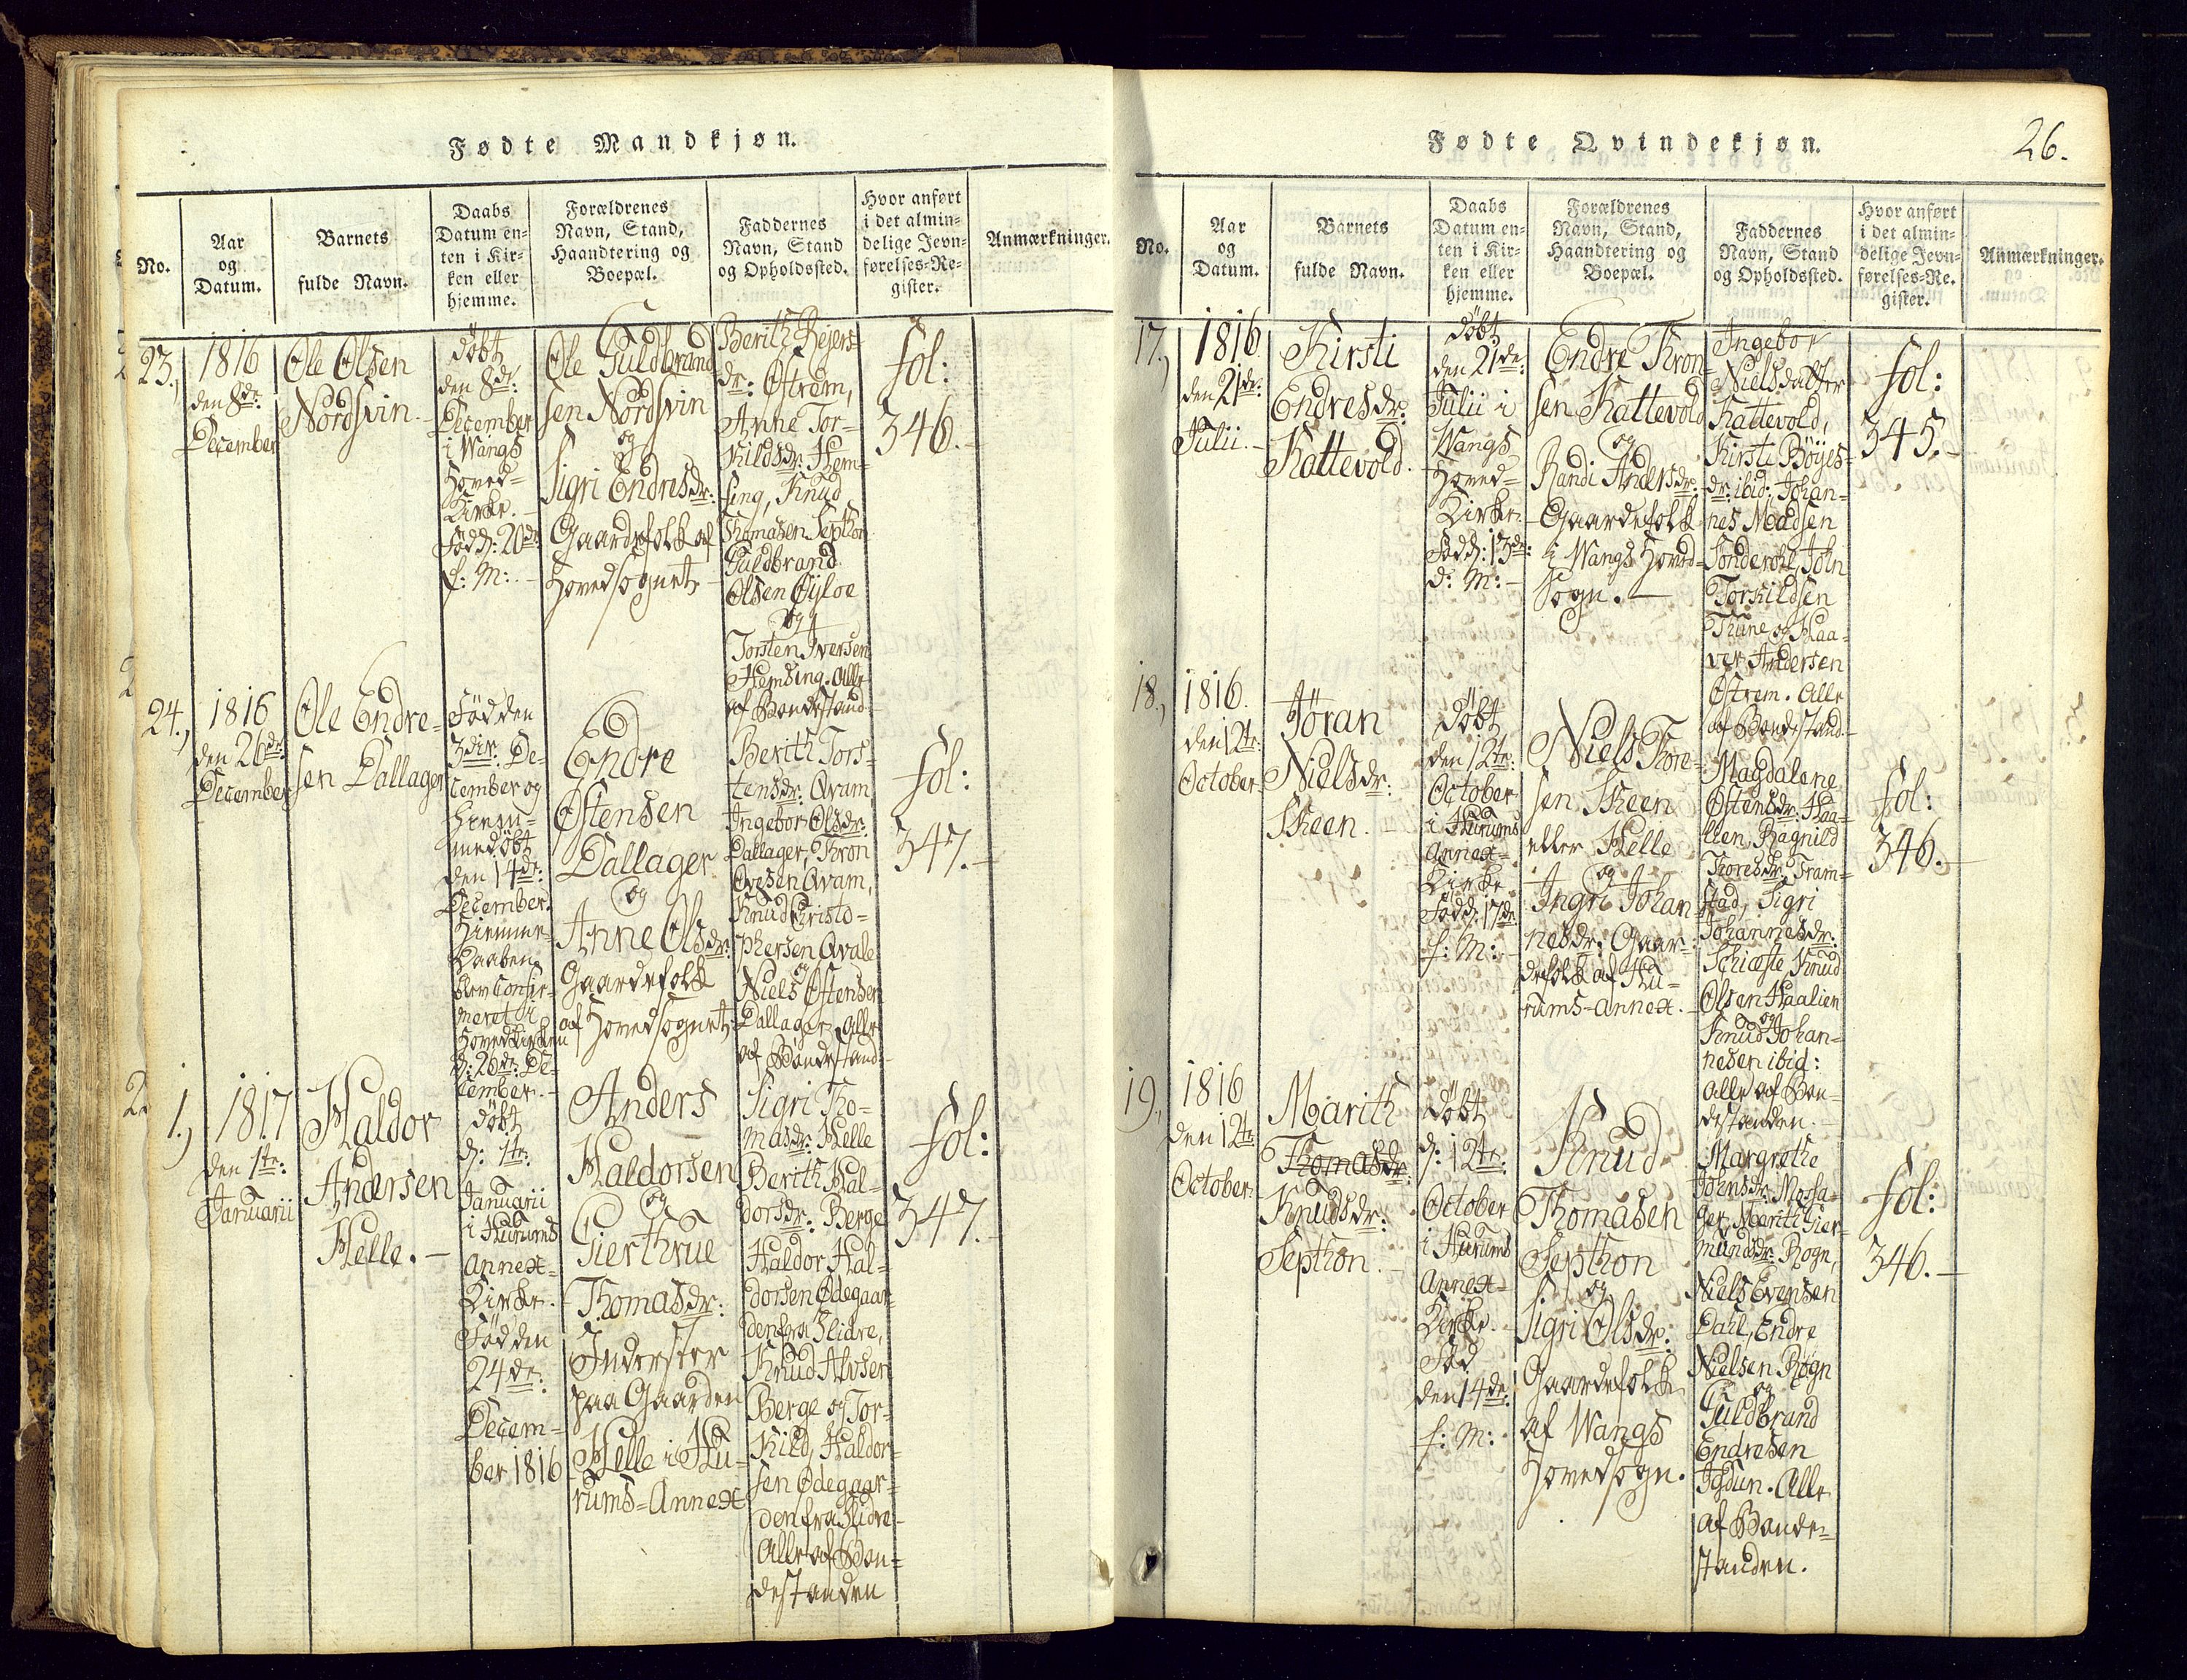 Fødte Mandkjøn.
No.
Aar
og
Datum.
Barnets
fulde Navn.
Daabs
Datum en=
ten i Kir=
ken eller
hjemme.
Forældrenes
Navn, Stand,
Haandtering og
Boepæl.
Faddernes
Navn, Stand
og Opholdssted.
Hvor anført
i det almin=
delige Jevn=
førelses=Re=
gister.
Anmærkninger.
23.,
1816
den 8de:
December
Ole Olsen
Nordsvin.
döbt
den 8de:
December
i Wangs
Hoved=
Kirke.
Född: 20de
f: M:
Ole Guldbrand
sen Nordsvin
og
Sigri Endresdr:
Gaardefolk af
Hovedsognet
Berith Bejers
dr: Østrem,
Anne Tor=
kildsdr: Hem=
sing, Knud
Thomasen Septhon
Guldbrand
Olsen Öyloe
og
Torsten Iversen
Hemsing. Alle
af Bondestand.
fol:
346.
24.,
1816
den 26de
December
Ole Endre=
sen Dallager
Född den
3die De=
cember og
hiem=
medöbt
den 14de:
December.
Hiemme=
Daaben
blev confir=
meret i
Hovedkirken
d: 26de: De=
cember.
Endre
Östensen
Dallager
og
Anne Olsdr:
Gaardefolk
af Hovedsognet:
Berith Tors=
tensdr: Qvam,
Ingebor Olsdr:
Dallager, Thron
Ovesen Qvam,
Knud Christo=
phersen Qvale
og
Niels Östensen
Dallager. Alle
af Bondestand.
fol:
347.
1.,
1817
den 1te:
Januarii
Haldor
Andersen
Helle.
döbt
d: 1te:
Januarii
i Hurums
Annex=
Kirke.
Född den
24de:
Decem=
ber 1816
Anders
Haldorsen
og
Gierthrue
Thomasdr:
Inderster
paa Gaarden
Helle i Hu=
rums=Annex
Sigri Tho=
masdr: Helle
Berith Hal=
dorsdr: Berge
Haldor Hal=
dorsen Ödegaar=
den fra Slidre,
Knud Alvsen
Berge og Tor=
kild Haldor=
sen Ödegaar=
den fra Slidre
Alle af Bon=
destanden
fol:
347.
Fødte Qvindekjøn.
26.
No.
Aar
og
Datum.
Barnets
fulde Navn.
Daabs
Datum en=
ten i Kir=
ken eller
hjemme.
Forældrenes
Navn, Stand,
Haandtering og
Boepæl.
Faddernes
Navn, Stand
og Opholdssted.
Hvor anført
i det almin=
delige Jevn=
førelses=Re=
gister.
Anmærkninger.
17.,
1816
den 21de:
Julii.
Kirsti
Endresdr:
Kattevold.
döbt
den 21de:
Julii i
Wangs
Hoved=
Kirke.
Född: 13de:
d: M:
Endre Thron=
sen Kattevold
og
Randi Andersdr:
Gaardefolk
i Wangs Hoved=
Sogn.
Ingebor
Nielsdatter
Kattevold,
Kirsti Böyes=
dr: ibid: Johan=
nes Madsen
Sönderohl, John
Torkildsen
Thune og Haa=
ver Andersen
Östrem. Alle
af Bondestand.
fol:
345.
18.,
1816.
den 12te:
October
Jöran
Nielsdr:
Skeen.
döbt
den 12te:
October
i Hurums
Annex=
Kirke
Född: 17de
f: M:
Niels Thore=
sen Skeen
eller Helle
og
Ingri Johan
nesdr: Gaar=
defolk af Hu=
rums=Annex.
Magdalene
Östensdr: Haa=
lien, Ragnild
Thoresdr: Fram=
stad, Sigri
Johannesdr:
Schieste, Knud
Olsen Haalien
og
Knud Johan=
nesen ibid:
alle af Bon=
destanden.
fol:
346.
19.,
1816
den 12te
October
Marith
Thomasdr:
Knudsdr:
Septhon.
döbt
d: 12te:
October
i Hurums
Annex=
Kirke.
Föd
den 14de:
f: M:
Knud
Thomasen
Septhon
og
Sigri Olsdr:
Gaardefolk
af Wangs
Hovedsogn.
Margrethe
Johnsdr: Mosa=
ger, Marith Gier=
mundsdr: Rogn,
Niels Evensen
Dahl, Endre
Nielsen Rogn
og
Guldbrand
Endresen
Igdun. Alle
af Bonde=
standen.
fol:
346.